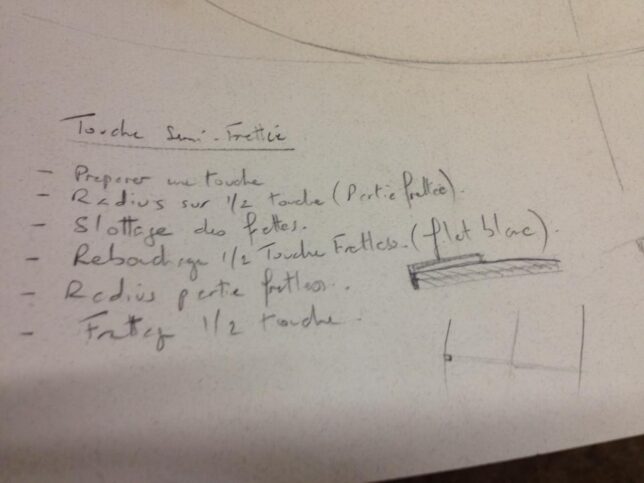 Touche Semi-Frettée
- Preparer une touche
- Radius sur 1/2 touche (Partie frettée).
- Slottage des frettes.
- Rebouchage 1/2 Touche Fretless. (filet blanc).
- Radius partie fretless.
- Frettage 1/2 touche.